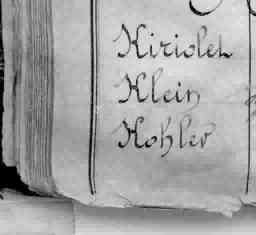 Kiriolet
Klein
Kohler